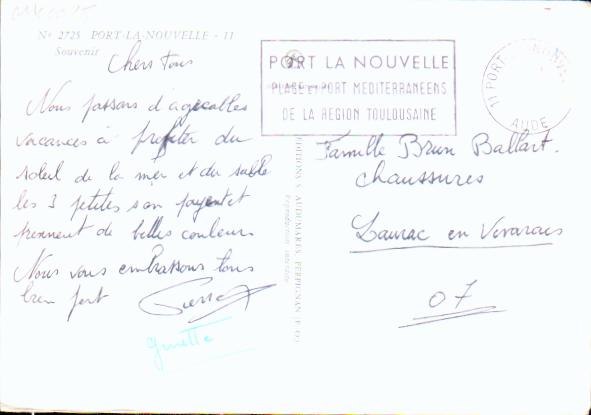 Nº 2725 PORT-LA-NOUVELLE - 11
Souvenir
Chers tous
Nous passons d'agréables
vacances à profiter du
soleil de la mer et du sable
les 3 petites son payent et
prennent de belles couleurs
Nous vous embrassons tous
bien fort
Ginette
PORT LA NOUVELLE
PLAGE ET PORT MEDITERRANEENS
DE LA REGION TOULOUSAINE
11 PORT
AUDE
EDITIONS S. AUDUMARES PERPIGNAN (P.-O.)
Famille Brun Ballart.
Chaussures
Laurac en Vivarais
07